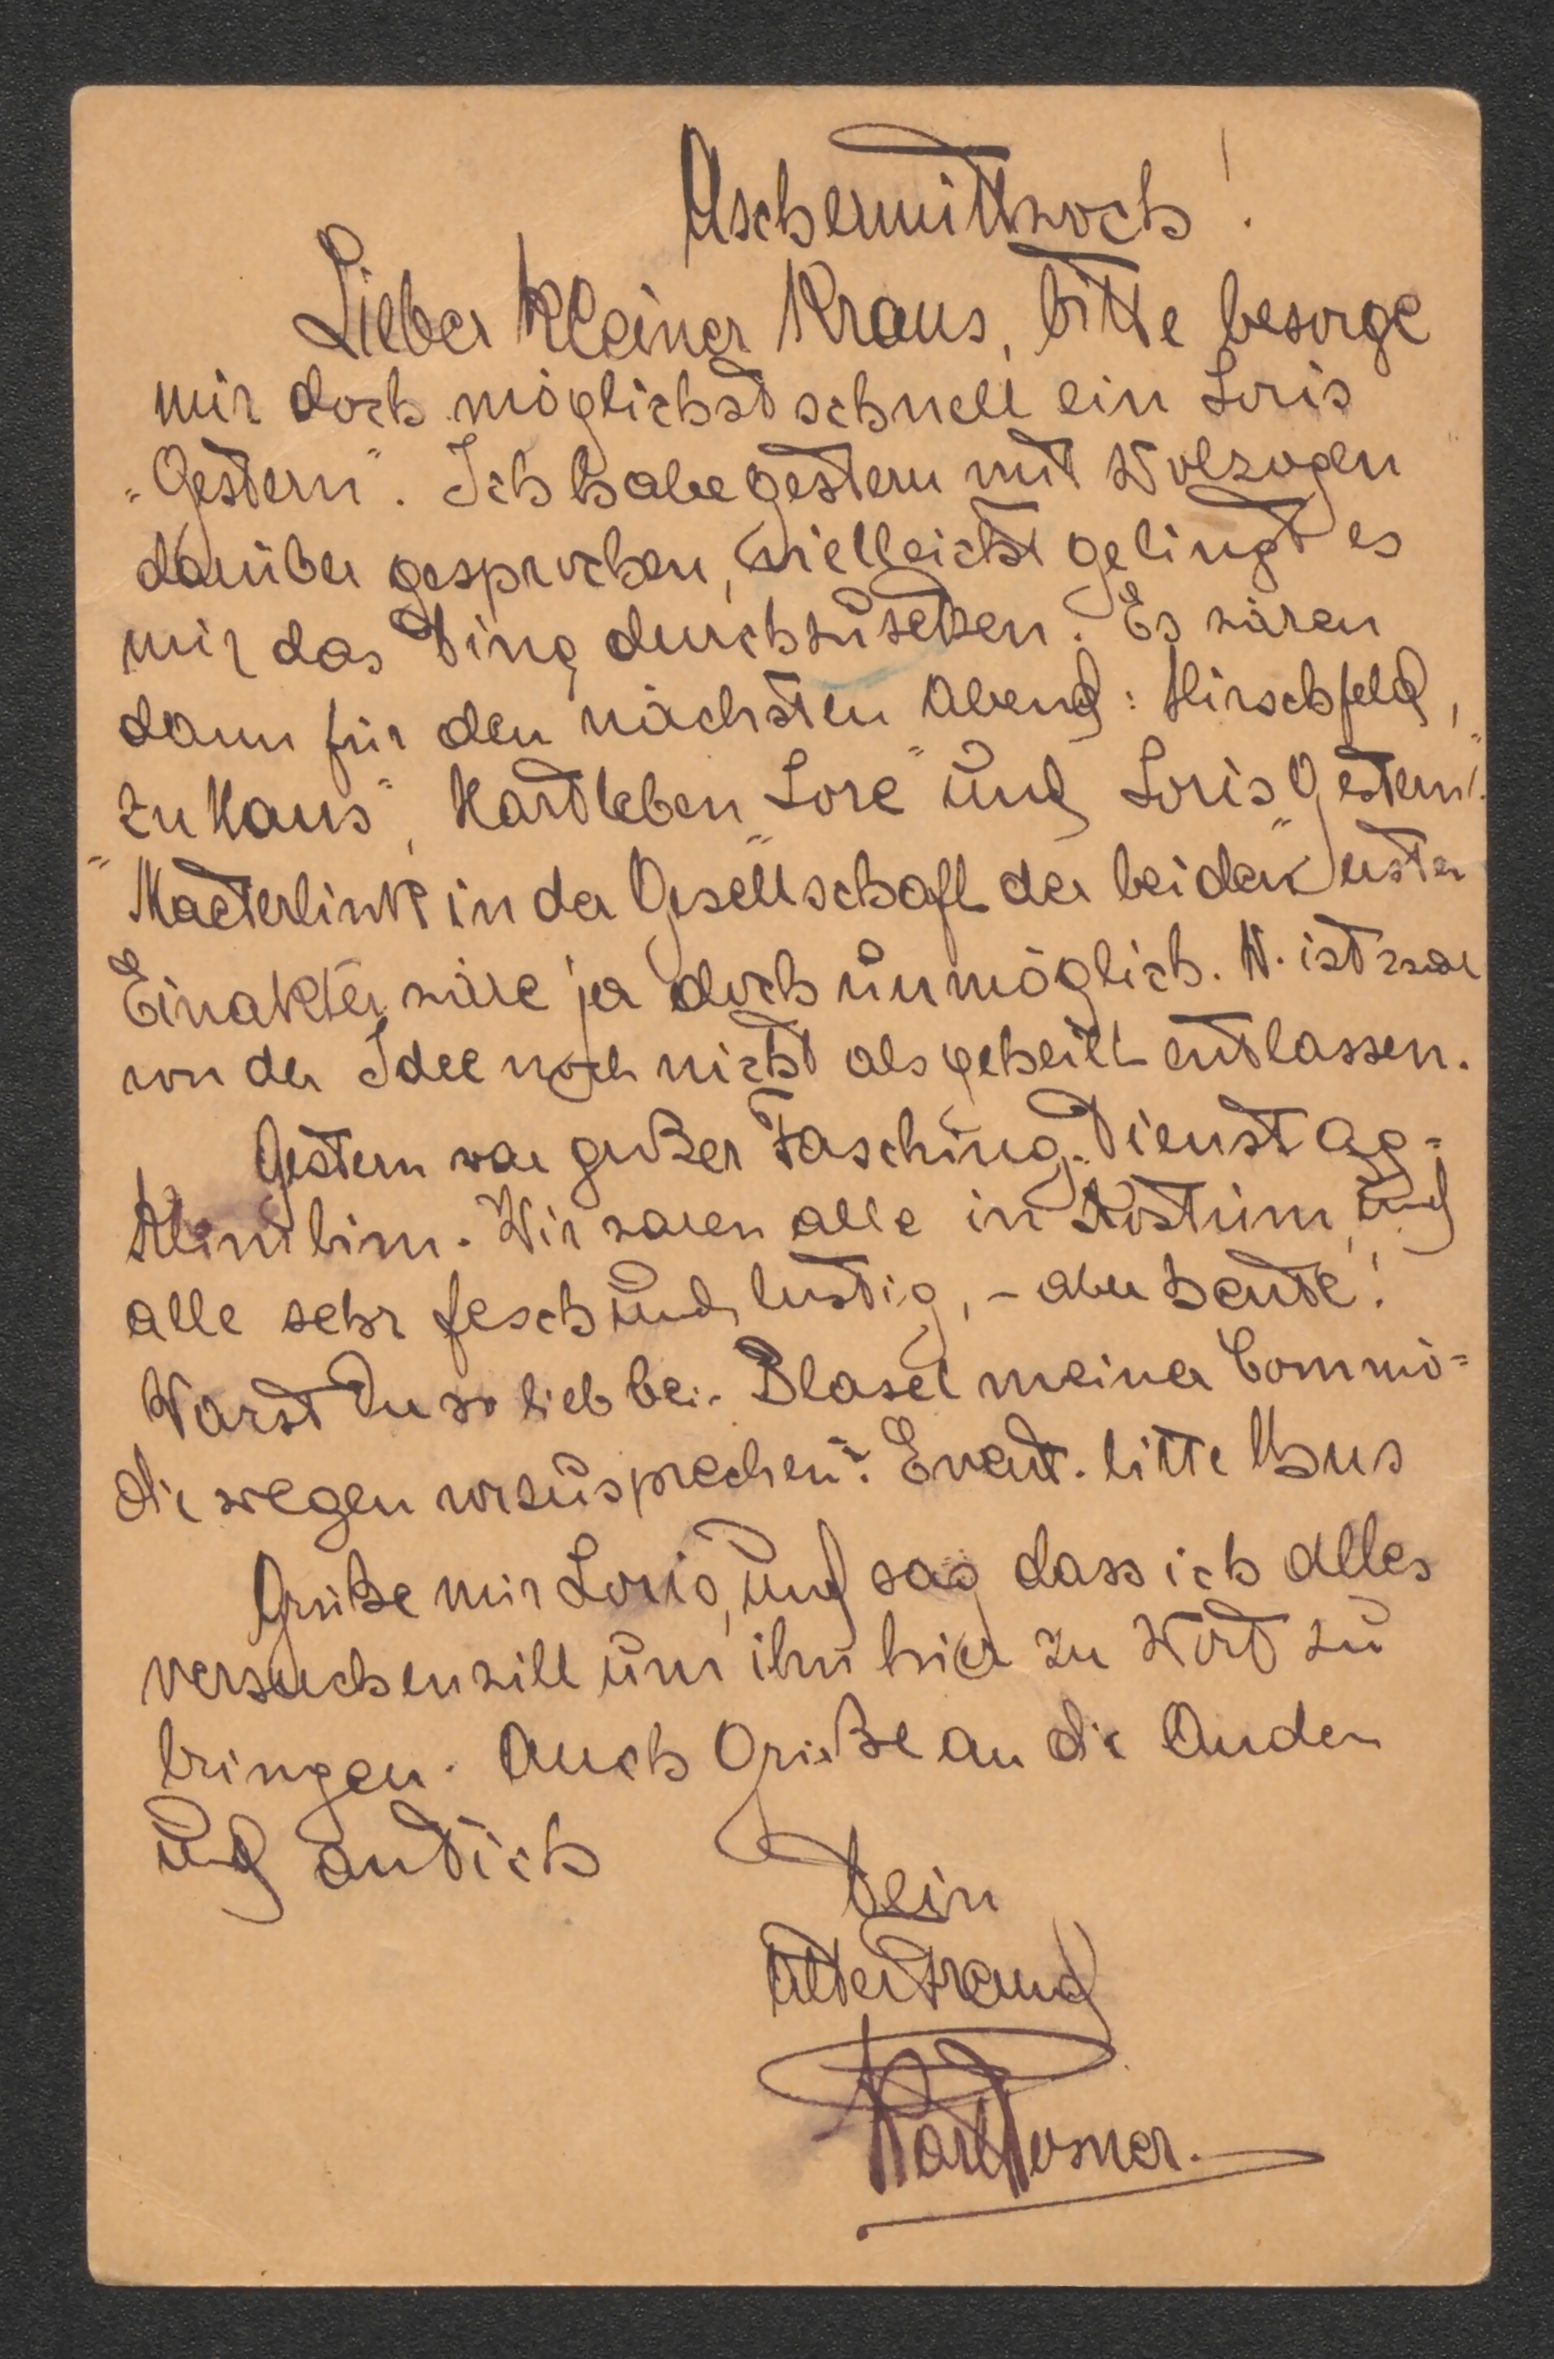 Aschermittwoch!
Lieber kleiner Kraus, bitte besorge
mir doch möglichst schnell ein Loris
„Gestern". Ich habe gestern mit Wolzogen
darüber gesprochen, vielleicht gelingt es
mir das Ding durchzusetzen. Es wären
dann für den nächsten Abend: Hirschfeld,
„Zu Haus", Hartleben „Lore" und Loris „Gestern".
Maeterlink in der Gesellschaft der beiden erster
Einakter wäre ja doch unmöglich. W. ist zwar
von der Idee noch nicht als geheilt entlassen.
Gestern war großer Fasching-Dienstag-
Klimbim. Wir waren alle in Kostüm, und
alle sehr fesch und lustig, - aber heute!
Warst Du so lieb bei Blasel meiner Commö-
die wegen vorzusprechen? Event. bitte thus
Grüße mir Loris, und sag dass ich alles
versuchen will um ihn hier zu Wort zu
bringen. Auch Grüße an die Andern
und an Dich
Dein
alter Freund
Karl Rosner.